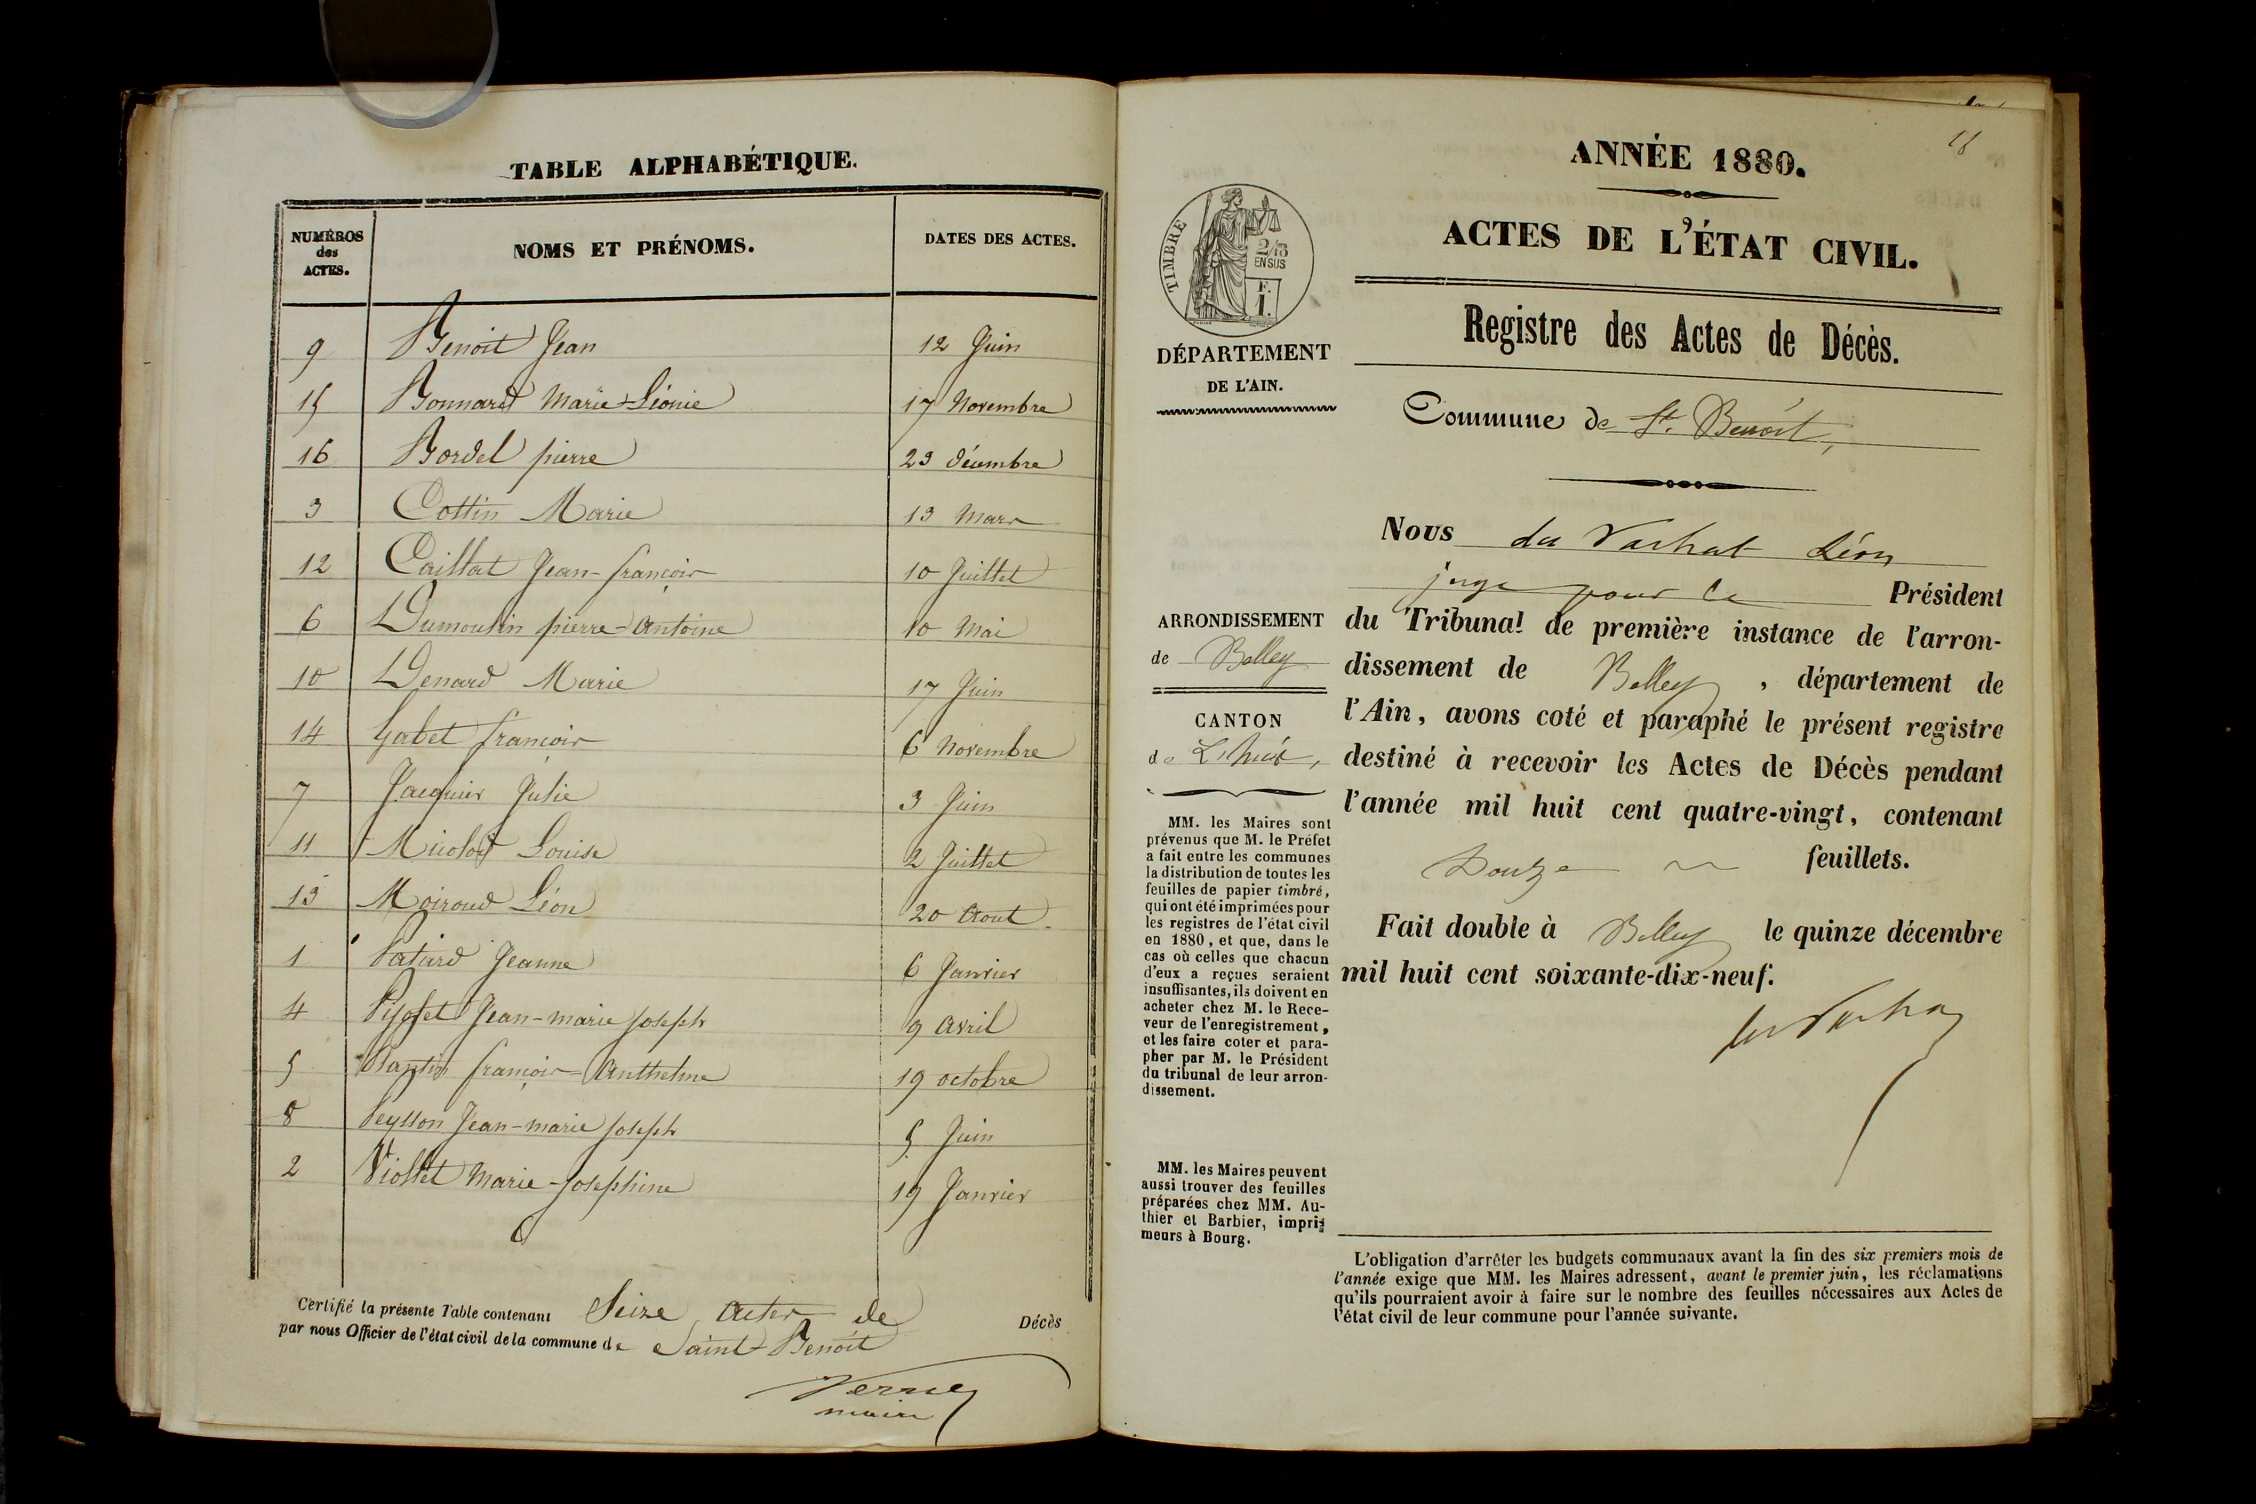 TABLE ALPHABÉTIQUE.
NUMÉROS des ACTES. NOMS ET PRÉNOMS. DATES DES ACTES.
9 Benoit Jean 12 Juin
15 Bonnard Marie-Léonie 17 Novembre
16 Bordel pierre 23 décembre
3 Cottin Marie 13 Mars
12 Caillat Jean-françois 10 Juillet
6 Dumoulin pierre-Antoine 10 Mai
10 Denard Marie 17 Juin
14 Gabet françois 6 Novembre
7 Jacquier Julie 3 Juin
11 Louise 2 Juillet
13 Moiroud Léon 20 Aout
1 Jeanne 6 Janvier
4 Jean-marie Joseph 9 Avril
5 françois-Anthelme 19 octobre
8 Peysson Jean-marie Joseph 5 Juin
2 Viollet Marie-Josephine 19 Janvier
Certifié la présente Table contenant Seize Actes de Décès
par nous Officier de l'état civil de la commune de Saint-Benoît
maire
18
ANNÉE 1880.
ACTES DE L'ÉTAT CIVIL.
TIMBRE
2/10
EN SUS
F.
1.
DÉPARTEMENT
DE L'AIN.
Registre des Actes de Décès.
Commune de St. Benoît,
Nous du Vachat Léon
juge pour le Président
du Tribunal de première instance de l'arron-
dissement de Belley, département de
l'Ain, avons coté et paraphé le présent registre
destiné à recevoir les Actes de Décès pendant
l'année mil huit cent quatre-vingt, contenant
Douze feuillets.
Fait double à Belley le quinze décembre
mil huit cent soixante-dix-neuf.
du Vachat
ARRONDISSEMENT
de Belley
CANTON
de Lhuis,
MM. les Maires sont
prévenus que M. le Préfet
a fait entre les communes
la distribution de toutes les
feuilles de papier timbré,
qui ont été imprimées pour
les registres de l'état civil
en 1880, et que, dans le
cas où celles que chacun
d'eux a reçues seraient
insuffisantes, ils doivent en
acheter chez M. le Rece-
veur de l'enregistrement,
et les faire coter et para-
pher par M. le Président
du tribunal de leur arron-
dissement.
MM. les Maires peuvent
aussi trouver des feuilles
préparées chez MM. Au-
thier et Barbier, impri-
meurs à Bourg.
L'obligation d'arrêter les budgets communaux avant la fin des six premiers mois de
l'année exige que MM. les Maires adressent, avant le premier juin, les réclamations
qu'ils pourraient avoir à faire sur le nombre des feuilles nécessaires aux Actes de
l'état civil de leur commune pour l'année suivante.